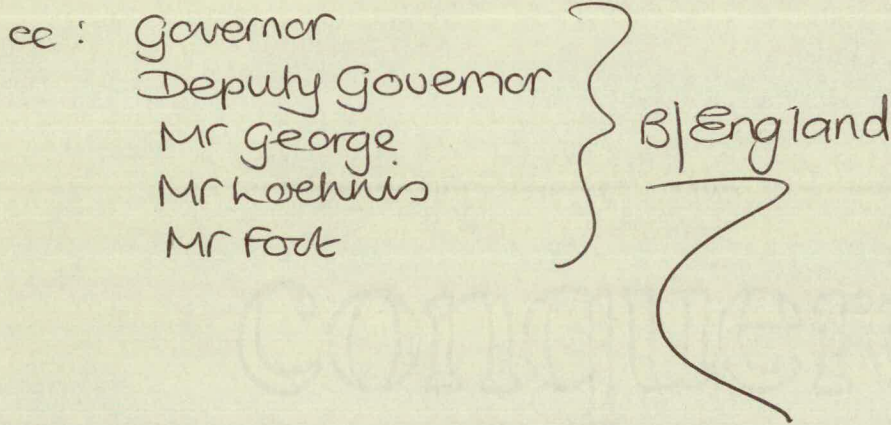 cc: Governor
Deputy Governor
Mr George
Mr Loehnis
Mr Foot
B|England
Conqueror